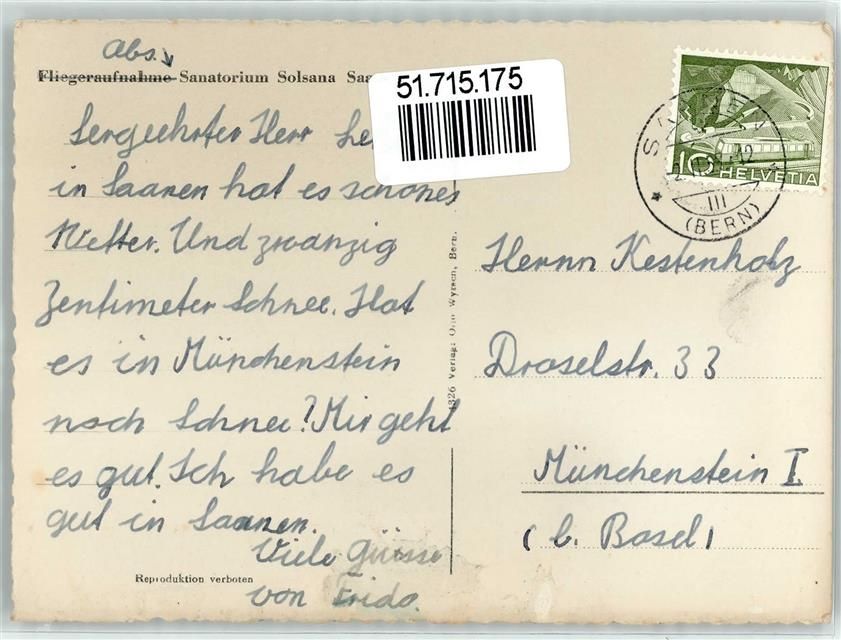 Abs.
Fliegeraufnahme Sanatorium Solsana
51.715.175
Sergeehrter Herr
in Saanen hat es schönes
Wetter. Und zwanzig
Zentimeter Schnee. Hat
es in Münchenstein
noch Schnee? Mir geht
es gut. Ich habe es
gut in Saanen.
Viele Grüsse
von Frido.
Reproduktion verboten
4326 Verlag: Otto Wyrsch, Bern.
10 HELVETIA
III
(BERN)
Herrn Kestenholz
Droselstr. 33
Münchenstein I
(b. Basel)